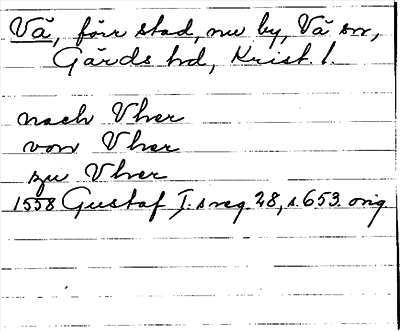 Vä, förr stad, nu by, Vä sn,
Gärds hd, Krist. l.
nach Vher
von Vher
zu Vher
1558 Gustaf I:s reg. 28, s. 653. orig